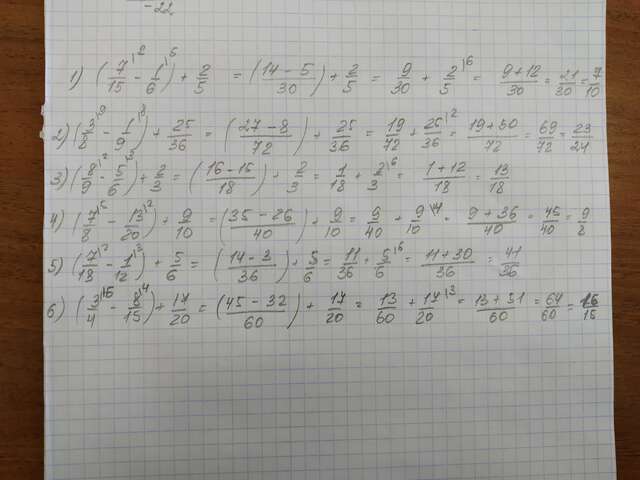 -22
1) (7/15 - 1/6) + 2/5 = (14-5/30) + 2/5 = 9/30 + 2/5 = 9+12/30 = 21/30 = 7/10
2) (3/8 - 1/9) + 25/36 = (27-8/72) + 25/36 = 19/72 + 25/36 = 19+50/72 = 69/72 = 23/24
3) (8/9 - 5/6) + 2/3 = (16-15/18) + 2/3 = 1/18 + 2/3 = 1+12/18 = 13/18
4) (7/8 - 13/20) + 9/10 = (35-26/40) + 9/10 = 9/40 + 9/10 = 9+36/40 = 45/40 = 9/8
5) (7/18 - 1/12) + 5/6 = (14-3/36) + 5/6 = 11/36 + 5/6 = 11+30/36 = 41/36
6) (3/4 - 8/15) + 17/20 = (45-32/60) + 17/20 = 13/60 + 17/20 = 13+51/60 = 64/60 = 16/15